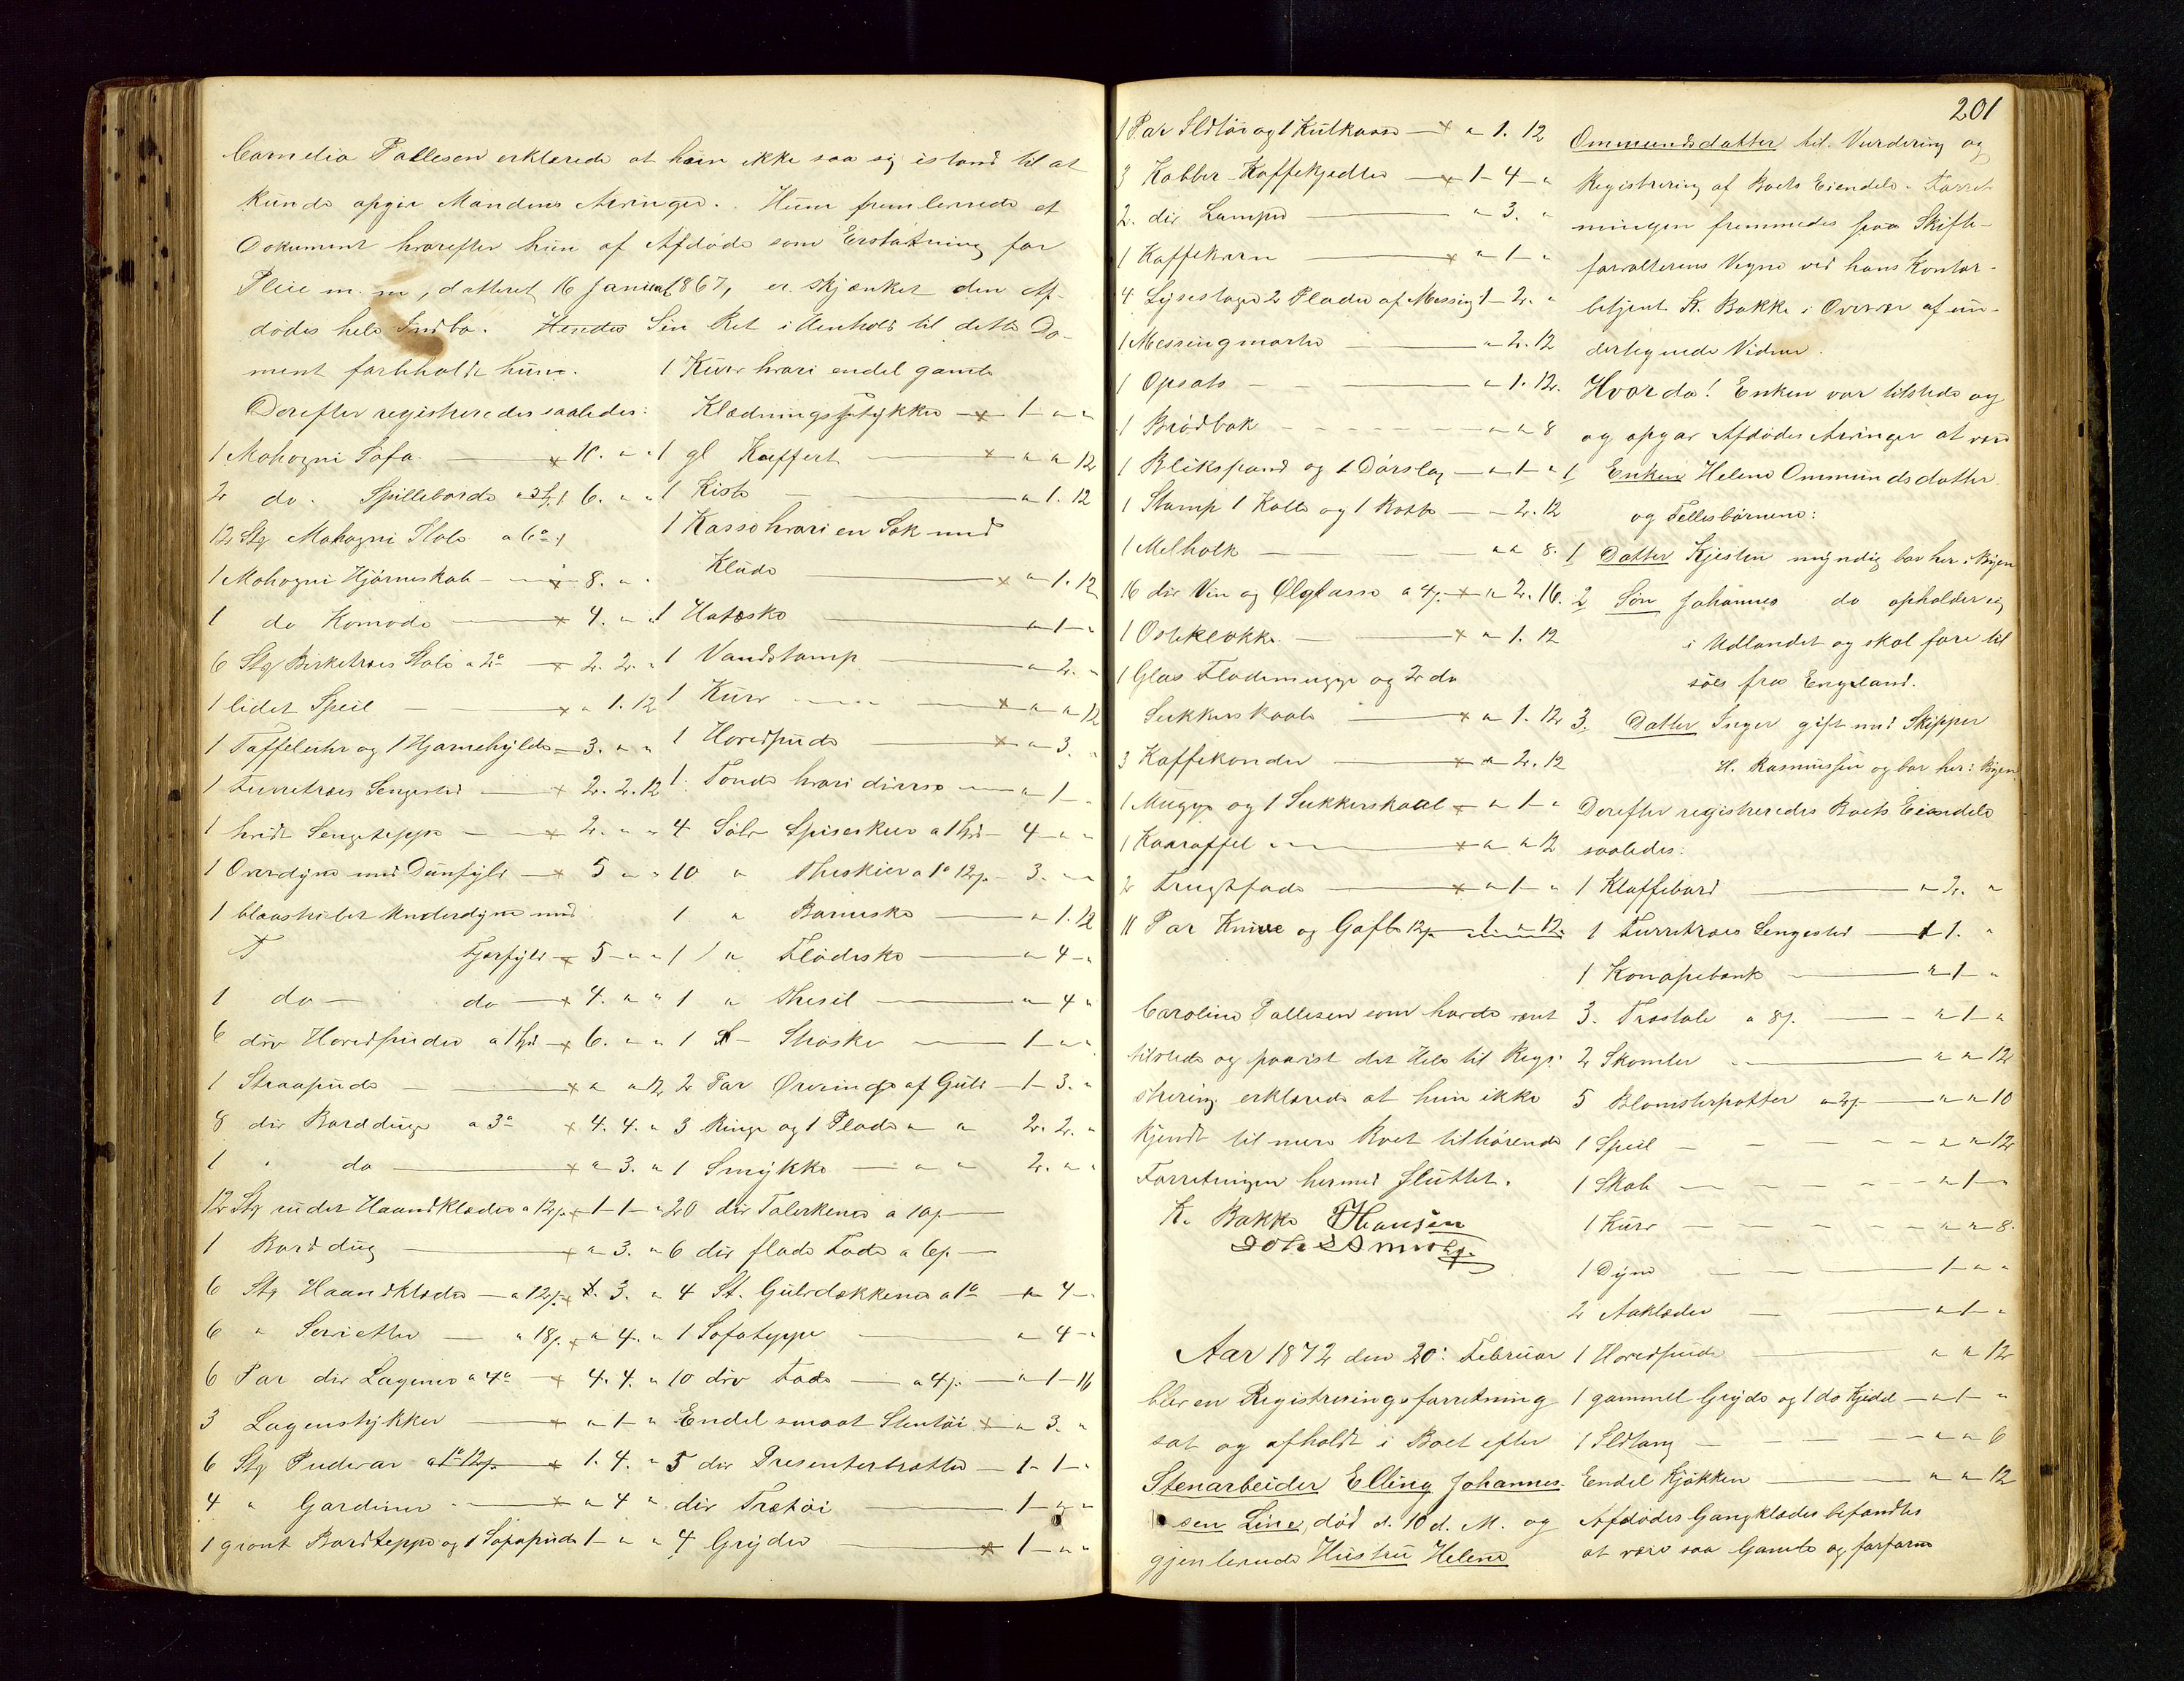 Camelia Pallesen erklærede at hun ikke saa sig istand til at
kunde opgive Mandens Arvinger. Hun fremlevrede et
Dokument hvorefter hun af Afdøde som Erstatning for
Pleie m. m, datteret 16 Januar 1867, er skjænket den Af-
dødes hele Indbo. Sin Ret i Henhold til dette Do-
ment forbeholdt hun.
Derefter registreredes saaledes:
1 Mahogni Sofa x 10. " "
2 do. Spilleborde a 3 6. " "
12 Stg Mahogni Stole a 6
1 Mahogni Hjørneskab x 8. " "
1 do Komode x 4. " "
6 Stg Birketræes Stole a 2 x 2. 2. "
1 lidet Speil x " 1. 12
1 Taffeluhr og 1 Hjørnehylde 3. " "
1 Furretræes Sengested x 2. 2. 12
1 hvidt Sengeteppe x 2. " "
1 Overdyne med Dunfyld x 5 " "
1 blaastribet Underdyne med
Fjærfyld x 5 " "
1 do do x 4. " "
6 div Hovedpuder a 1 x 6. " "
1 Straapude x " " 12
8 div Borddüge a 3 x 4. 4. "
1 " do x " 3. "
12 Stg Haandklæder a 12 x 1 1 "
1 Borddug x " 3. "
6 Stg Haandklæder a 12 x 3. "
6 " Servietter a 18 x " 4. "
6 Par div Lagener a 4 x 4. 4. "
3 Lagenstykker x " 1 "
6 Stg Pudevar a 1 12 x 1. 4. "
4 " Gardiner x " 4 "
1 grønt Bordteppe og 1 Sofapude 1 " "
1 Kurv hvori endel gamle
Klædningsstykker x 1 " "
1 gl Koffert x " " 12
1 Kiste " 1. 12
1 Kasse hvori en Sæk med
Klude x " 1. 12
1 Hateske " 1 "
1 Vandstamp " 2. "
1 Kurv x " " 12
1 Hovedpude x " 3. "
1 Tønde hvori diverse " 1 "
4 Sølv Spiseskeer a 1 4 " "
10 " Theskeer a 1 12 3. " "
1 " Barneske " 1. 12
1 " Flødeske " 4 "
1 " Thesil " 4 "
1 Strøske 1 " "
2 Par Øreringe af Guld 1 3. "
3 Ringe og 1 Plade " " 2. 2. "
1 Smykke " " 2. " "
20 div Talerkener a 10
6 div flade Fade a 6
4 St. Gulvdækkener a 1 " 4 "
1 Sofateppe " 4 "
10 div Fade a 4 " 1 16
Endel smaat Stentøi x " 3. "
5 div Presenterbrætter 1 1 "
div Trætøi 1 " "
4 Gryder x 1 " "
201
1 Par Ildtøi og 1 Kulkasse x " 1. 12
3 Kobber-Kaffekjedler x 1 4 "
2. div Lamper " 3. "
1 Kaffekværn x " 1 "
4 Lysestager 2 Plader af Messing 1 2. "
1 Messingmorter " 2. 12
1 Opsats " 1. 12.
1 Brødbak " " 8
1 Blikspand og 1 Dørslag " 1 "
1 Stamp 1 Kolle og 1 Bøtte " 2. 12
1 Melholk " " 8.
16 div Vin og Ølglasse a 4 x " 2. 16.
1 Osteklokke x " 1. 12
1 Glas Flødemugge og 2 do
Sukkerskaale x " 1. 12
3 Kaffekander x " 2. 12
1 Mugge og 1 Sukkerskaal x " 1 "
1 Karaffel x " " 12
2 Frugtfade x " 1 "
11 Par Knive og Gafle 12 1 " 12.
Caroline Pallesen som havde vært
tilstede og paavist det Hele til Regi-
strering erklærede at hun ikke
kjendt til mere Boet tilhørende
Forretningen hermed sluttet.
K. Bakke J Hansen
Aar 1872 den 20: Februar
blev en Registreringsforretning
sat og afholdt i Boet efter
Stenarbeider Elling Johannes-
sen Line, død d. 10 d. M. og
gjenlevende Hustru Helene
Ommundsdatter til Vurdering og
Registrering af Boets Eiendele. Forret-
ningen fremmedes paa Skifte-
forvalterens Vegne ved hans Kontor-
betjent K. Bakke i Overvær af un-
dertegnede Vidner.
Hvorda! Enken var tilstede og
og opgav Afdødes Arvinger at være
1 Enken Helene Ommundsdatter
og Fellesbørnene:
1 Datter Kjesten myndig bor her i Byen
2 Søn Johannes do opholder sig
i Udlandet og skal fare til
søes fra England.
3. Datter Inger gift med Skipper
H. Rasmussen og bor her i Byen
Derefter registreredes Boets Eiendele
saaledes:
1 Klaffebord " 2. "
1 Furretræes Sengested 1. "
1 Konapebænk " 1 "
3. Træstole a 8 " 1 "
2 Skamler " " 12
5 Blomsterpotter a 2 " " 10
1 Speil " " 12
1 Skab " 1 "
1 Kurv " " 8.
1 Dyne 1 " "
2 Aaklæder " 1 "
1 Hovedpude " " 12
1 gammel Gryde og 1 do Kjedel " 1 "
1 Ildtang " " 6
Endel Kjøkken " " 12
Afdødes Gangklæder befandtes
at være saa Gamle og forfarne